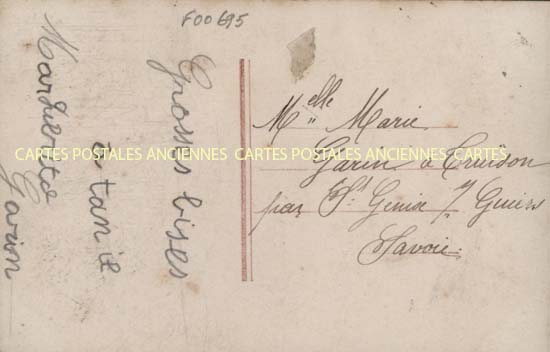 F00695
Grosses bises
Garin
Melle Marie
Garin à
par St Genix s/ Guiers
Savoie
CARTES POSTALES ANCIENNES CARTES POSTALES ANCIENNES CARTES POSTALES ANCIENNES